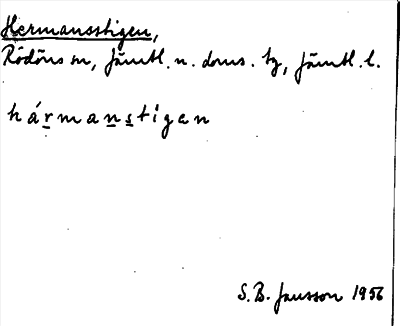 Hermansstigen,
Rödöns m, Jämtl. n. doms. tg, Jämtl. l.
hármanstigen
S. B. Jansson 1956